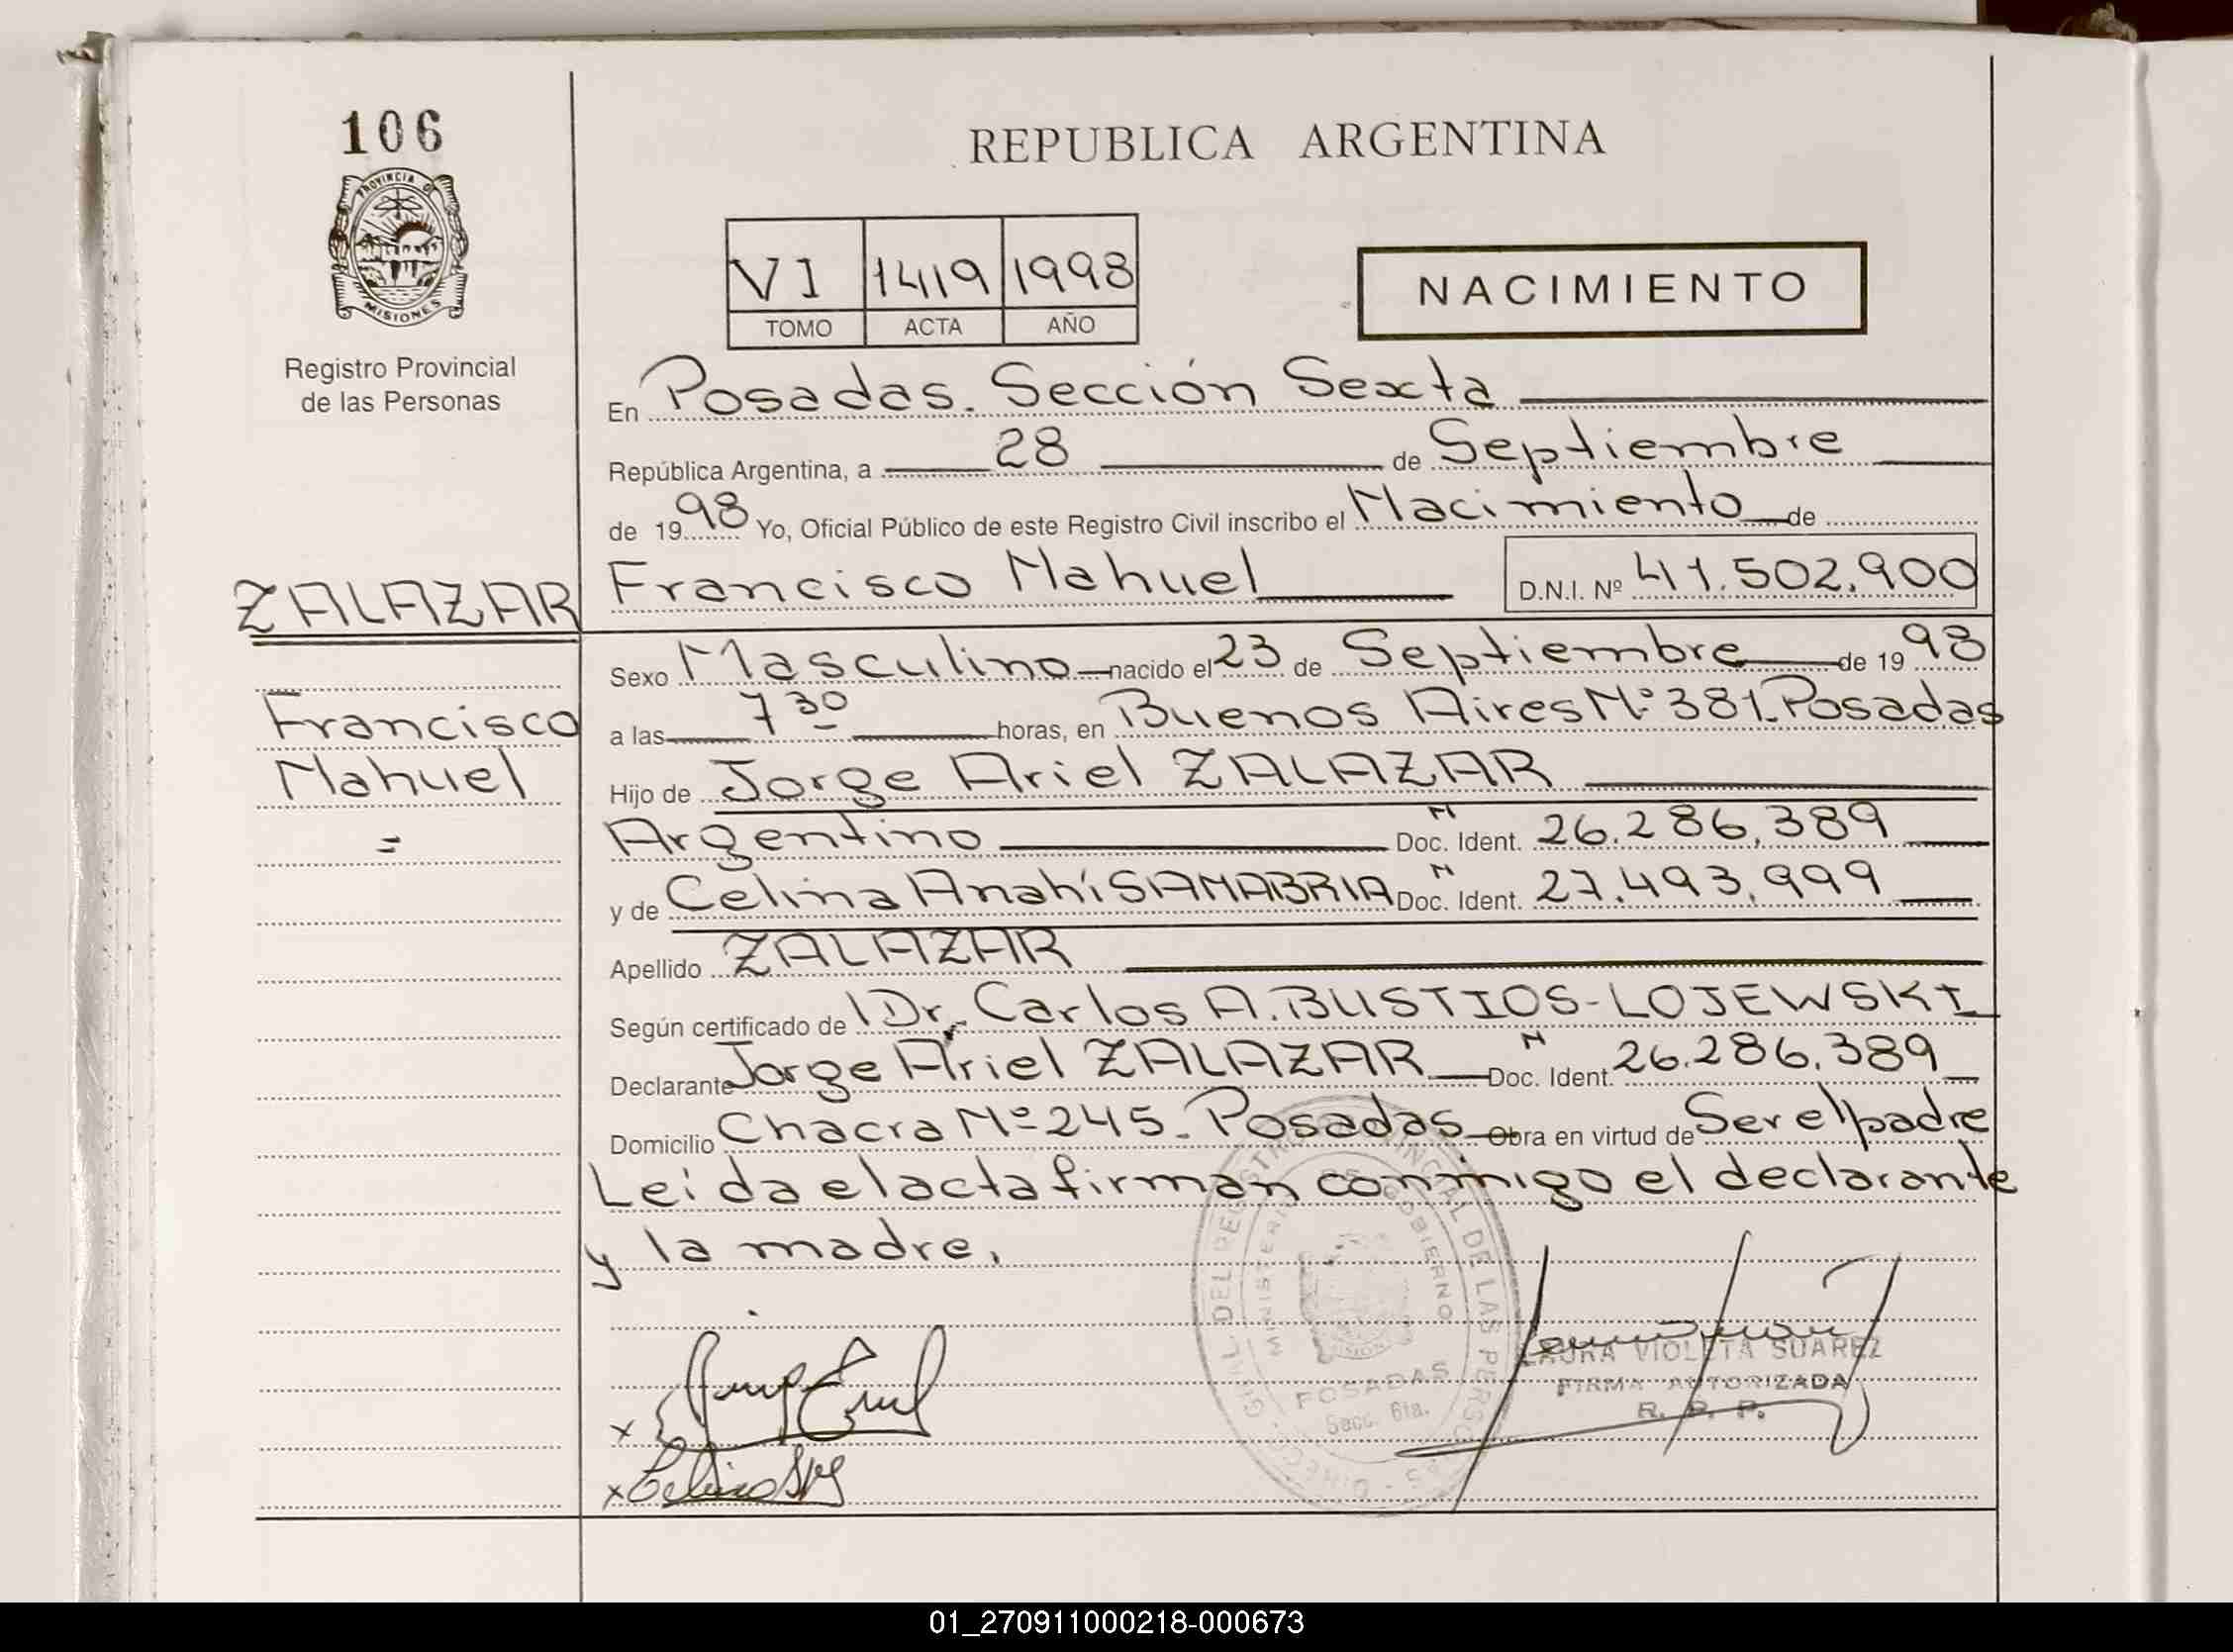 106
PROVINCIA DE
MISIONES
Registro Provincial
de las Personas
REPUBLICA ARGENTINA
VI 1419 1998
TOMO ACTA AÑO
NACIMIENTO
En Posadas. Sección Sexta
República Argentina, a 28 de Septiembre
de 1998 Yo, Oficial Público de este Registro Civil inscribo el Nacimiento de
ZALAZAR Francisco Nahuel D.N.I. Nº 41.502.900
Sexo Masculino nacido el 23 de Septiembre de 1998
Francisco a las 7 30 horas, en Buenos Aires Nº 381. Posadas
Nahuel Hijo de Jorge Ariel ZALAZAR
= Argentino Doc. N Ident. 26.286.389
y de Celina Anahí SANABRIA Doc. N Ident. 27.493.999
Apellido ZALAZAR
Según certificado de Dr. Carlos A. BUSTIOS-LOJEWSKI
Declarante Jorge Ariel ZALAZAR Doc. N Ident. 26.286.389
Domicilio Chacra Nº 245. Posadas Obra en virtud de Ser el padre
Leída el acta firman conmigo el declarante
y la madre.
MINISTERIO DE GOBIERNO
MISIONES
POSADAS
Secc. 6ta.
LAURA VIOLETA SUAREZ
FIRMA AUTORIZADA
R. P. P.
01_270911000218-000673